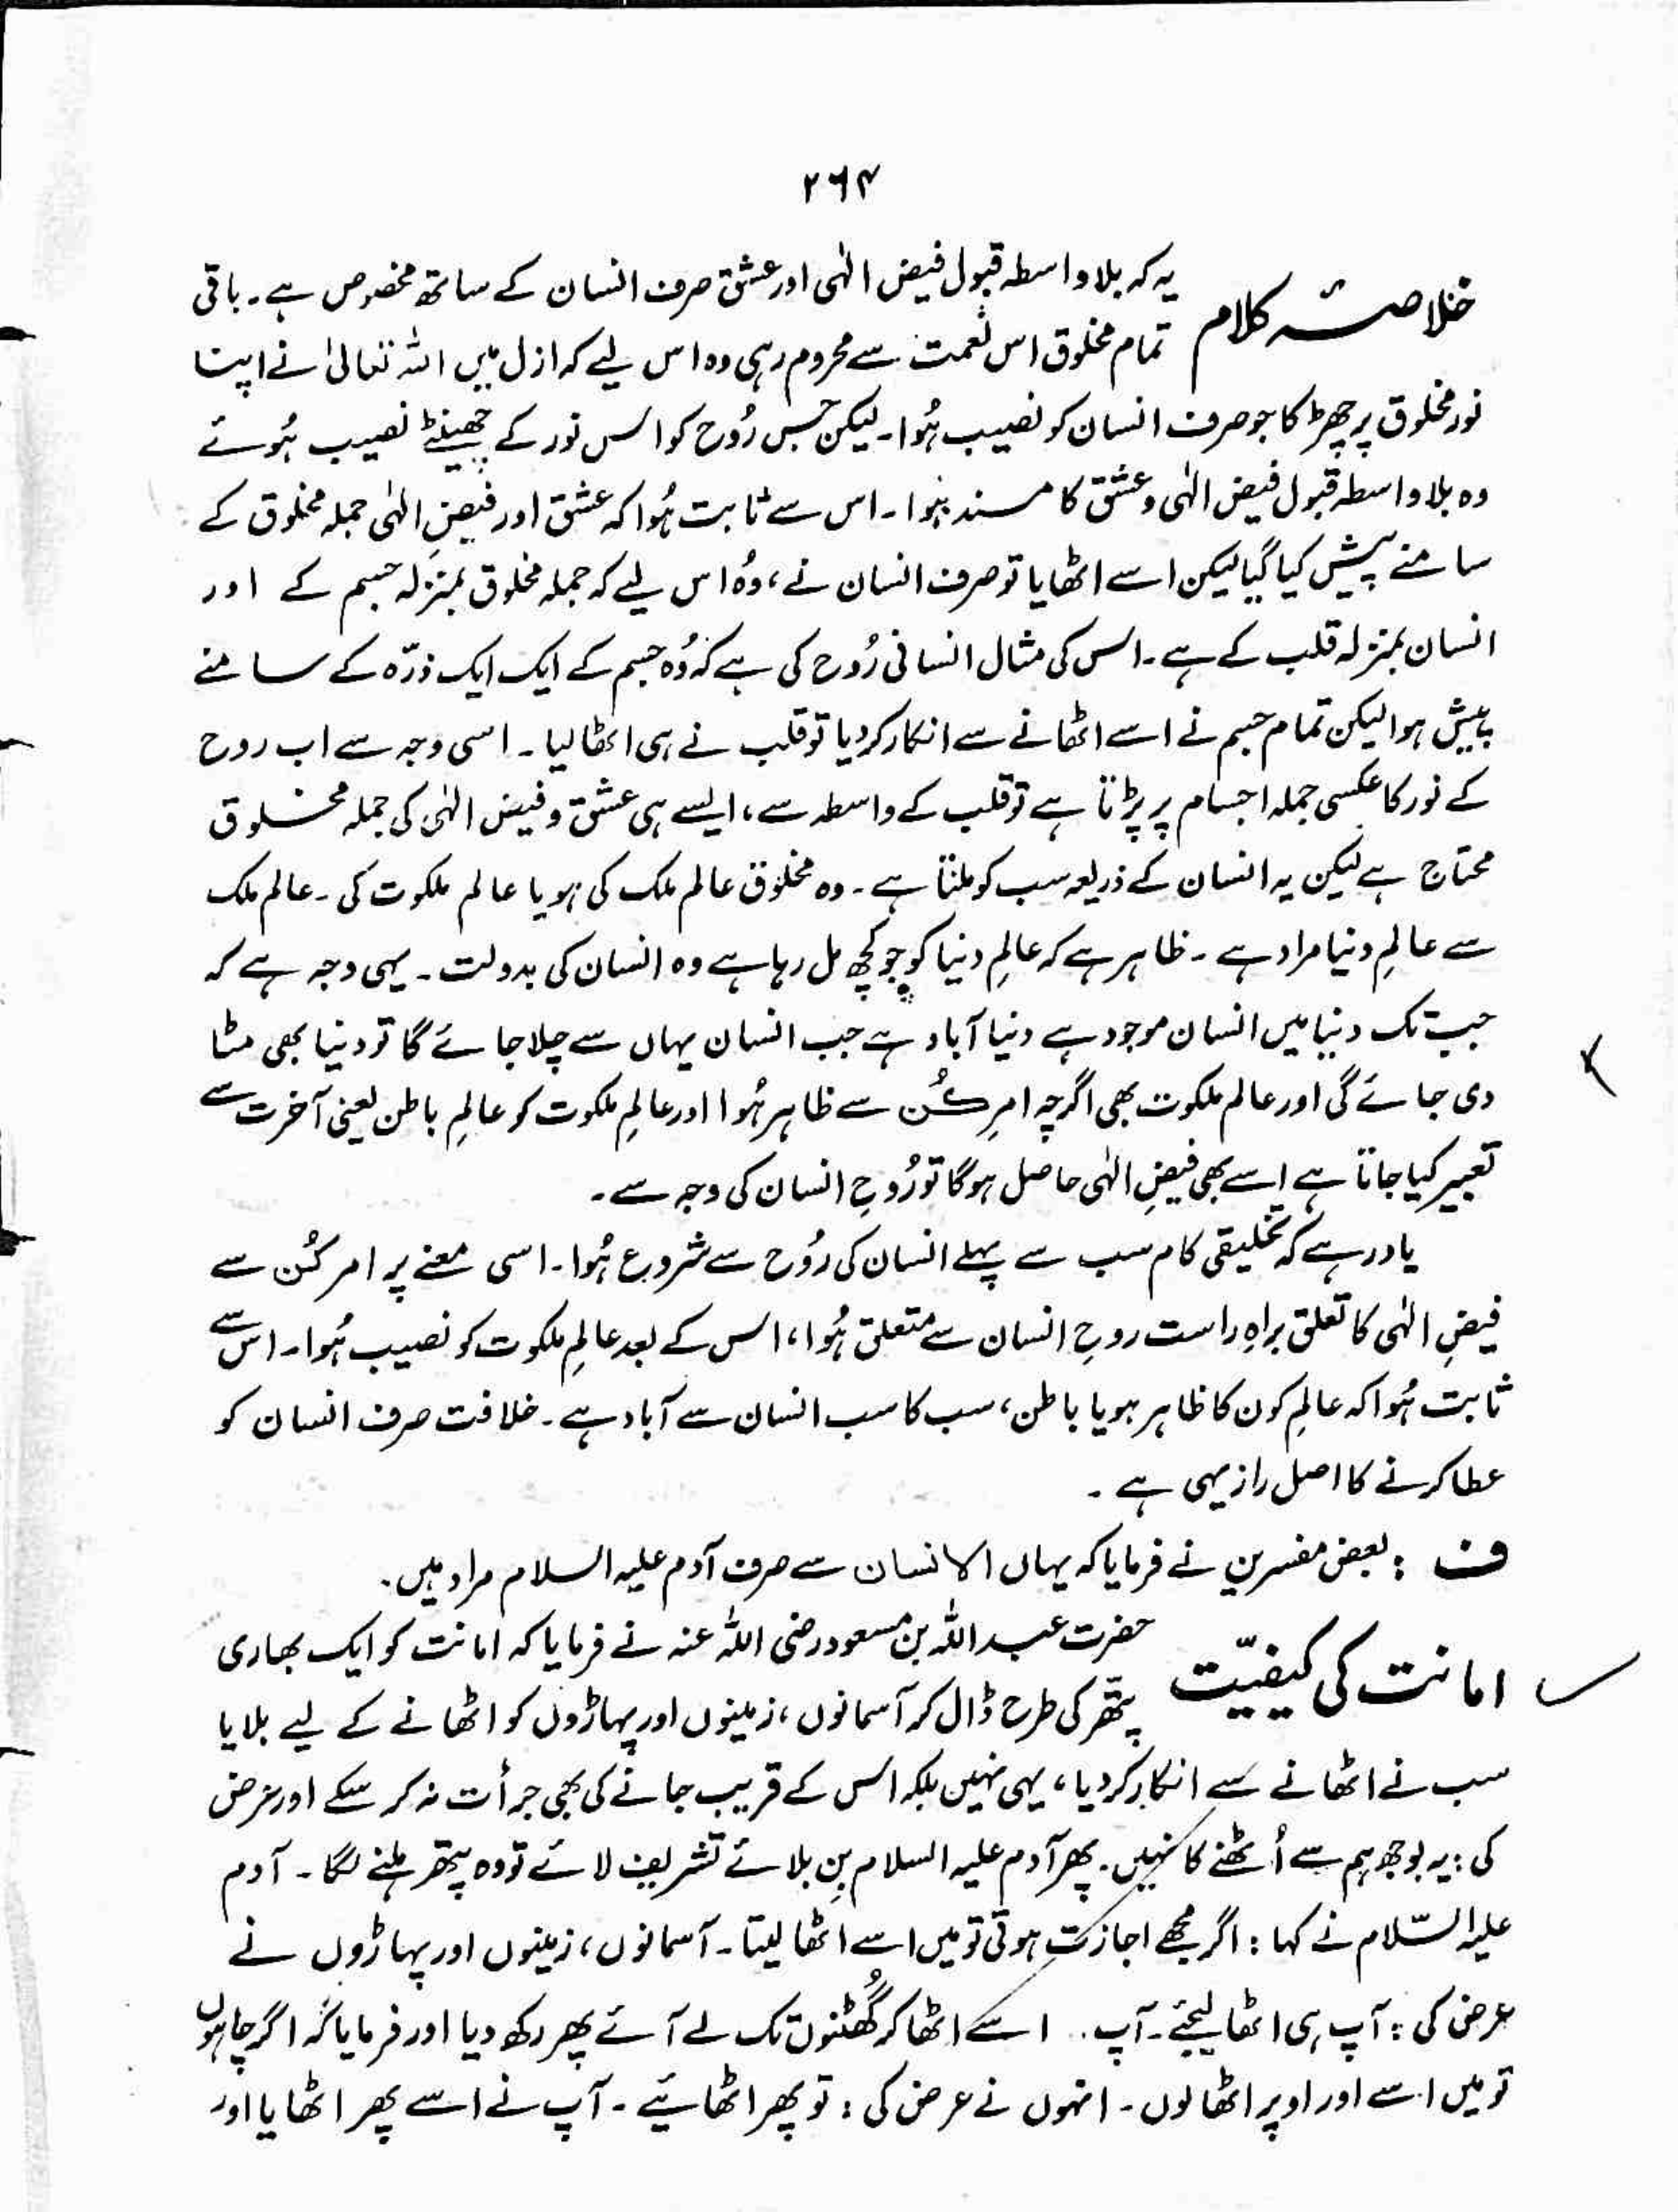 ۲۶۴
خلاصۂ کلام یہ کہ بلاواسطہ قبول فیض الٰہی اور عشق صرف انسان کے ساتھ مخصوص ہے۔ باقی
تمام مخلوق اس نعمت سے محروم رہی وہ اس لیے کہ ازل میں اللہ تعالیٰ نے اپنا
نور مخلوق پر چھڑکا جو صرف انسان کو نصیب ہُوا۔ لیکن جس رُوح کو اس نور کے چھینٹے نصیب ہُوئے
وہ بلاواسطہ قبول فیض الٰہی و عشق کا مسند ہُوا۔ اس سے ثابت ہُوا کہ عشق اور فیضِ الٰہی جملہ مخلوق کے
سامنے پیش کیا گیا لیکن اسے اٹھایا تو صرف انسان نے، وُہ اس لیے کہ جملہ مخلوق بمنزلہ جسم کے اور
انسان بمنزلہ قلب کے ہے۔ اس کی مثال انسانی رُوح کی ہے کہ وُہ جسم کے ایک ایک ذرّہ کے سامنے
پیش ہوا لیکن تمام جسم نے اسے اٹھانے سے انکار کر دیا تو قلب نے ہی اٹھا لیا۔ اسی وجہ سے اب روح
کے نور کا عکس جملہ اجسام پر پڑتا ہے تو قلب کے واسطہ سے، ایسے ہی عشق و فیض الٰہی کی جملہ مخلوق
محتاج ہے لیکن یہ انسان کے ذریعہ سب کو ملتا ہے۔ وہ مخلوق عالم ملک کی ہو یا عالم ملکوت کی۔ عالم ملک
سے عالمِ دنیا مراد ہے۔ ظاہر ہے کہ عالمِ دنیا کو جو کچھ مل رہا ہے وہ انسان کی بدولت۔ یہی وجہ ہے کہ
جب تک دنیا میں انسان موجود ہے دنیا آباد ہے جب انسان یہاں سے چلا جائے گا تو دنیا بھی مٹا
دی جائے گی اور عالم ملکوت بھی اگرچہ امرِ کُن سے ظاہر ہُوا اور عالمِ ملکوت کو عالمِ باطن یعنی آخرت سے
تعبیر کیا جاتا ہے اسے بھی فیضِ الٰہی حاصل ہوگا تو رُوحِ انسان کی وجہ سے۔
یاد رہے کہ تخلیقی کام سب سے پہلے انسان کی رُوح سے شروع ہُوا۔ اسی معنے پر امر کُن سے
فیضِ الٰہی کا تعلق براہِ راست روحِ انسان سے متعلق ہُوا، اس کے بعد عالمِ ملکوت کو نصیب ہُوا۔ اس سے
ثابت ہُوا کہ عالمِ کون کا ظاہر ہو یا باطن، سب کا سب انسان سے آباد ہے۔ خلافت صرف انسان کو
عطا کرنے کا اصل راز یہی ہے۔
ف : بعض مفسرین نے فرمایا کہ یہاں الانسان سے صرف آدم علیہ السلام مراد ہیں۔
امانت کی کیفیّت حضرت عبداللہ بن مسعود رضی اللہ عنہ نے فرمایا کہ امانت کو ایک بھاری
پتّھر کی طرح ڈال کر آسمانوں، زمینوں اور پہاڑوں کو اٹھانے کے لیے بلایا
سب نے اٹھانے سے انکار کر دیا، یہی نہیں بلکہ اس کے قریب جانے کی بھی جرأت نہ کر سکے اور عرض
کی : یہ بوجھ ہم سے اُٹھنے کا نہیں۔ پھر آدم علیہ السلام بِن بلائے تشریف لائے تو وہ پتھر ہلنے لگا۔ آدم
علیہ السّلام نے کہا : اگر مجھے اجازت ہوتی تو میں اسے اٹھا لیتا۔ آسمانوں، زمینوں اور پہاڑوں نے
عرض کی : آپ ہی اٹھا لیجئے۔ آپ اسے اٹھا کر گھُٹنوں تک لے آئے پھر رکھ دیا اور فرمایا کہ اگر چاہوں
تو میں اسے اور اوپر اٹھا لوں۔ انہوں نے عرض کی : تو پھر اٹھائیے۔ آپ نے اسے پھر اٹھایا اور